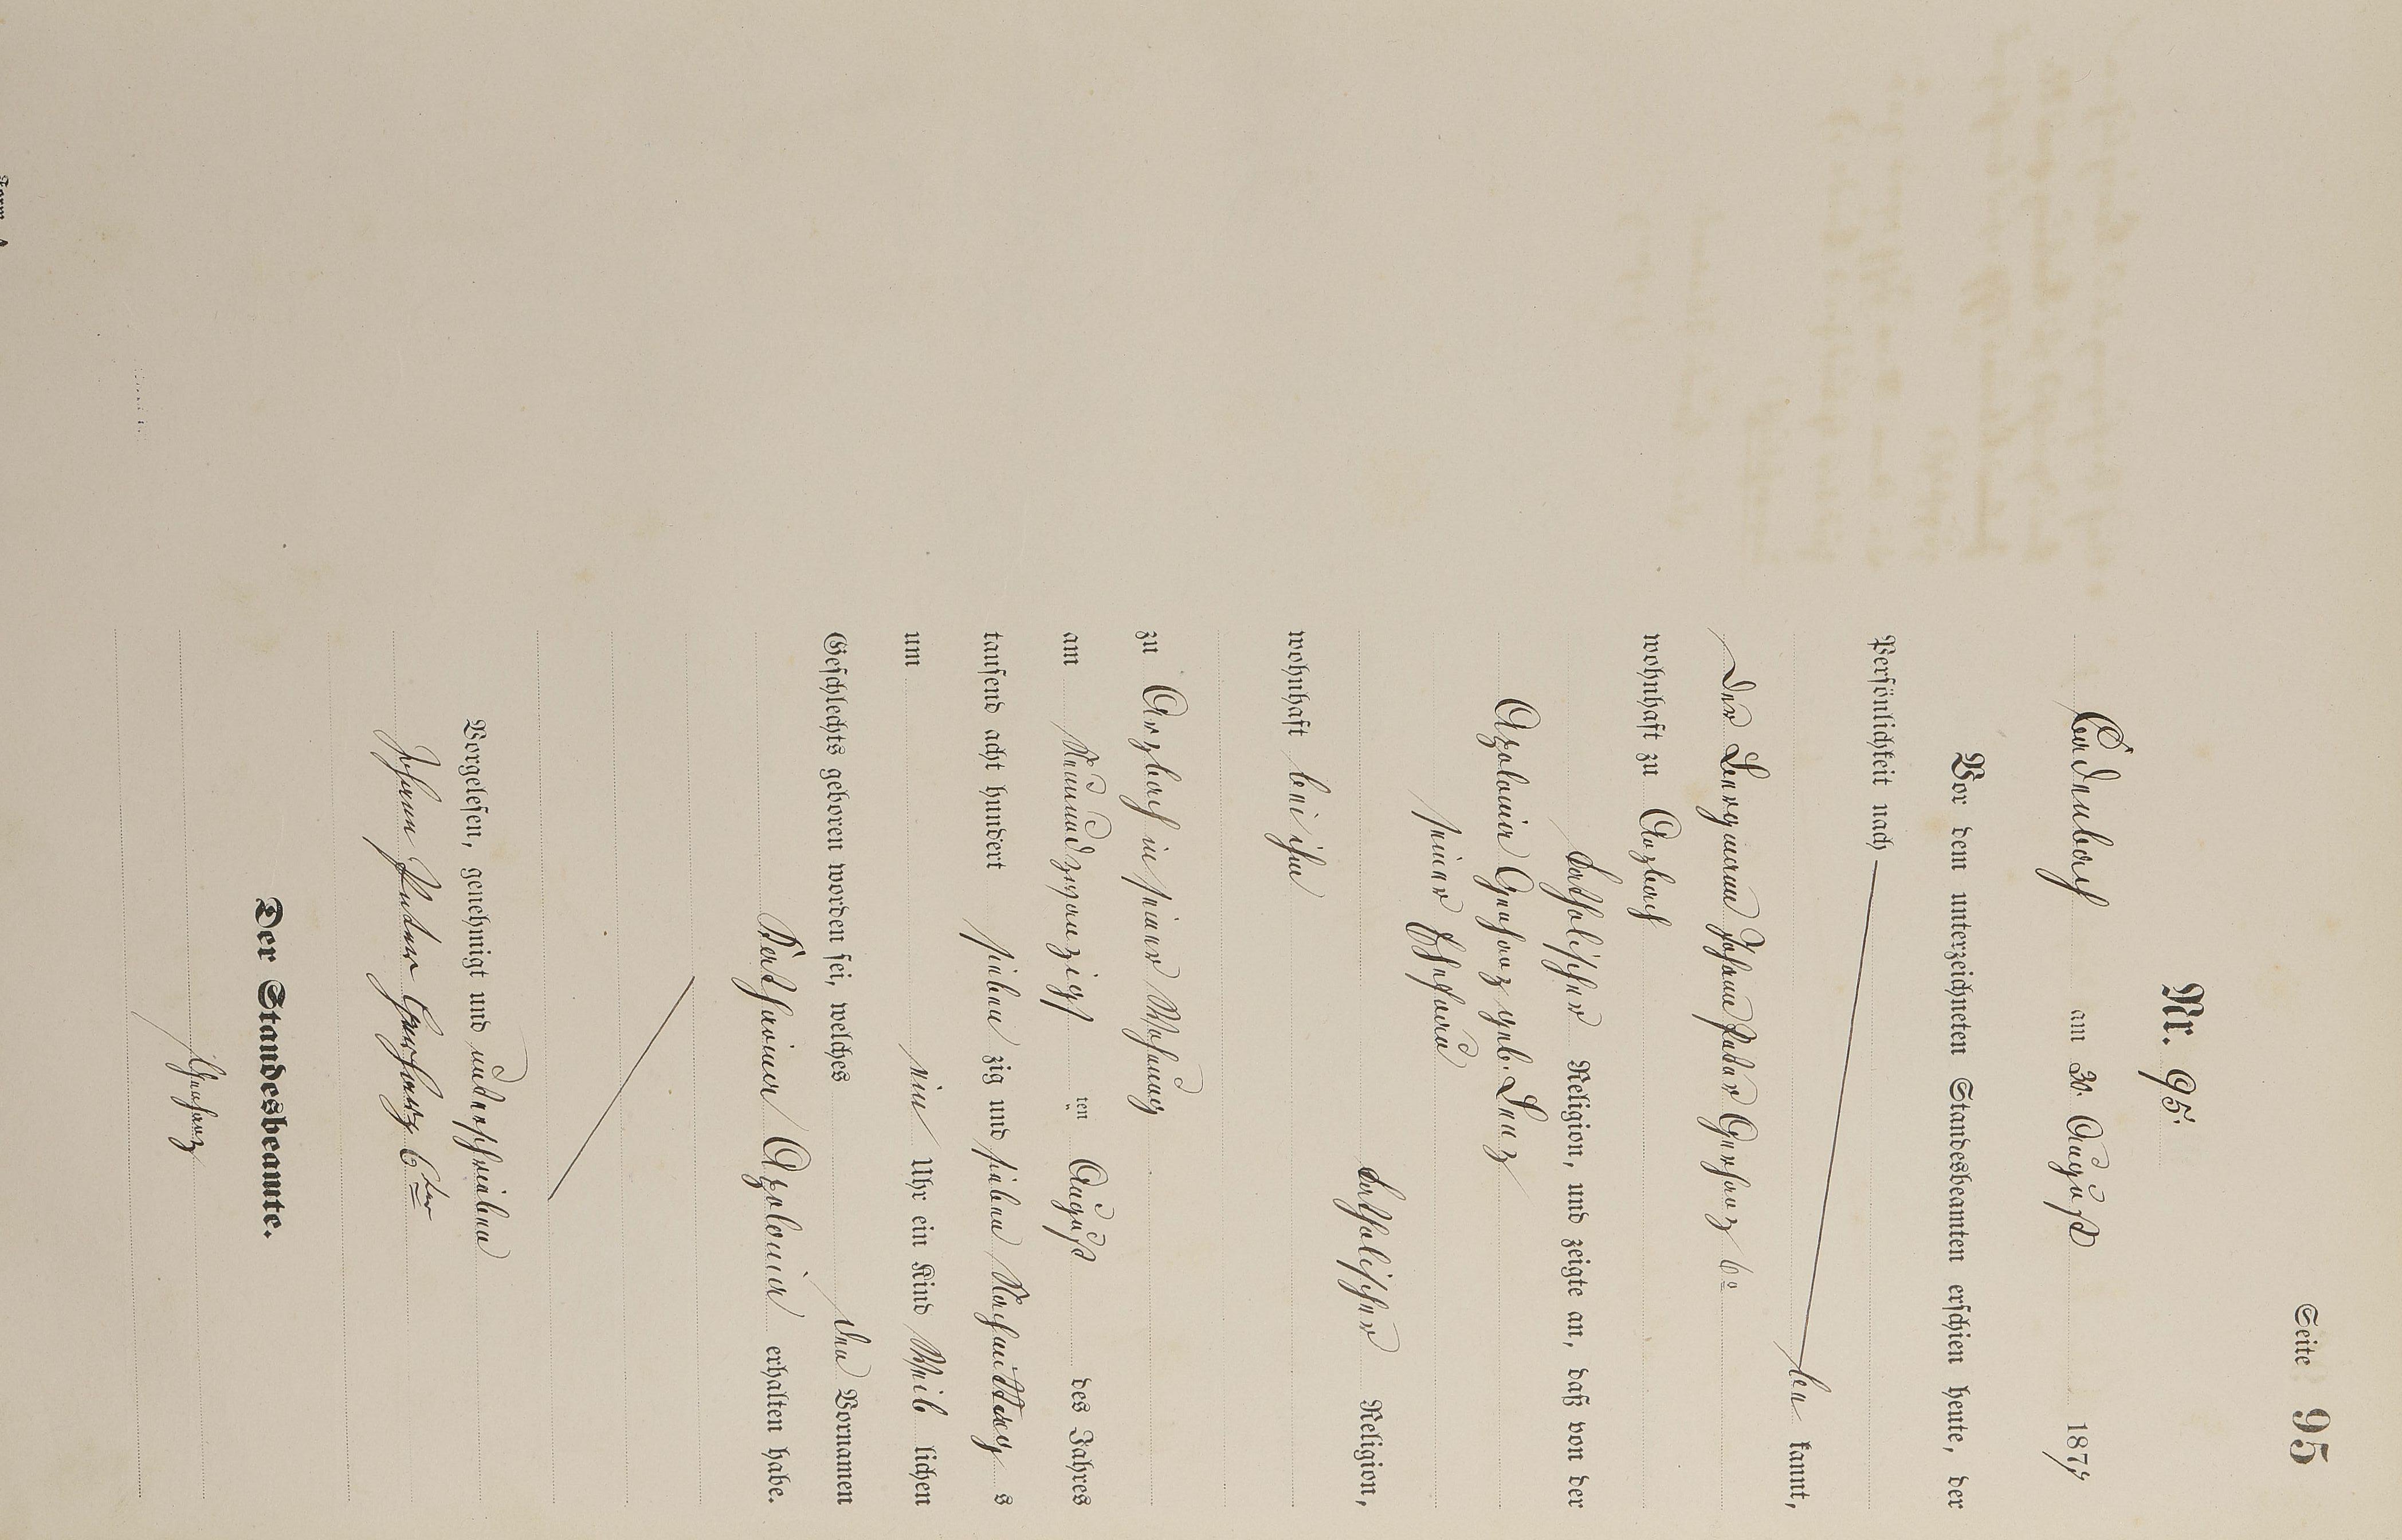 Seite 95
Nr. 95.
Cadenbach am 30. August 1877
Vor dem unterzeichneten Standesbeamten erschien heute, der
Persönlichkeit nach
be kannt,
der Bergmann Johann Peter Gerharz 6r
wohnhaft zu Arzbach
katholischer Religion, und zeigte an, daß von der
Apolonia Gerharz geb. Lenz
seiner Ehefrau
katholischer Religion,
wohnhaft bei ihm
zu Arzbach in seiner Wohnung
am Neunundzwanzigs ten August des Jahres
tausend acht hundert sieben zig und sieben Nachmittag s
um ein Uhr ein Kind Weib lichen
Geschlechts geboren worden sei, welches den Vornamen
Katharina Apolonia erhalten habe.
Vorgelesen, genehmigt und unterschrieben
Johann Peter Gerharz 6ter
Der Standesbeamte.
Gerharz